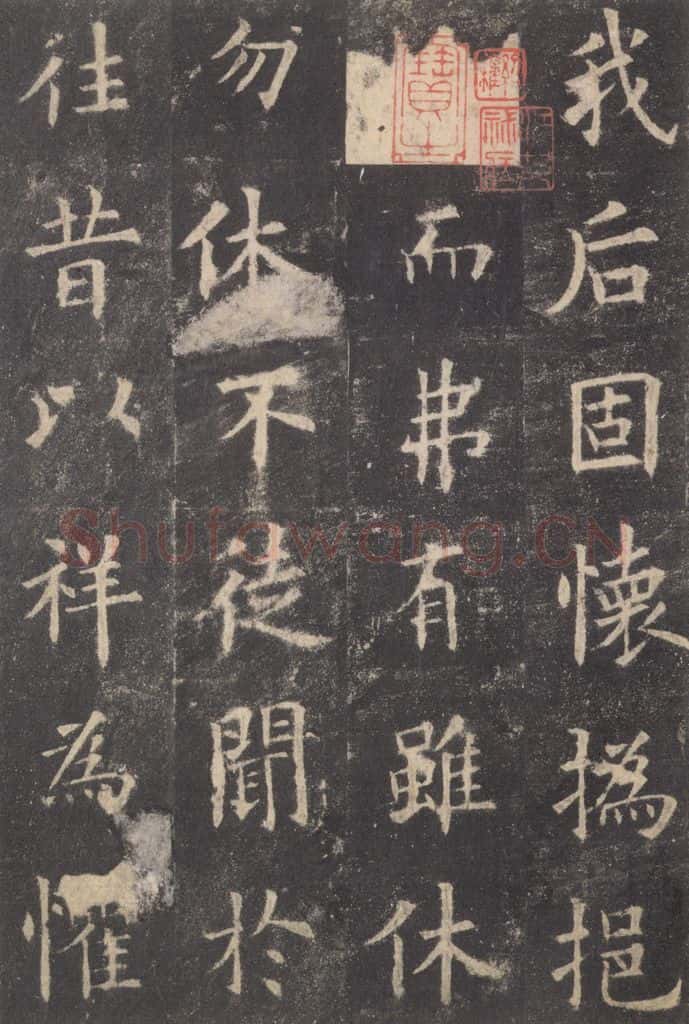 我后固懷撝挹
而弗有雖休
勿休不徒聞於
往昔以祥為懼
Shufawang.CN